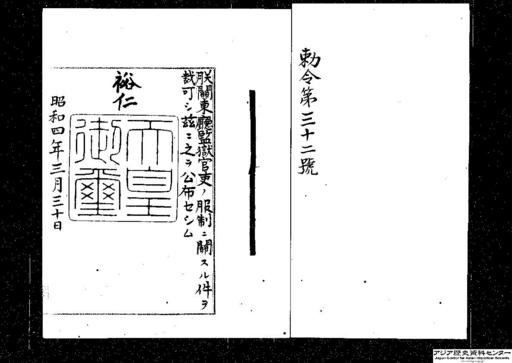 勅令第三十二號
朕關東廳監獄官吏ノ服制ニ關スル件ヲ
裁可シ茲ニ之ヲ公布セシム
裕仁
天皇御璽
昭和四年三月三十日
アジア歴史資料センター
Japan Center for Asian Historical Records